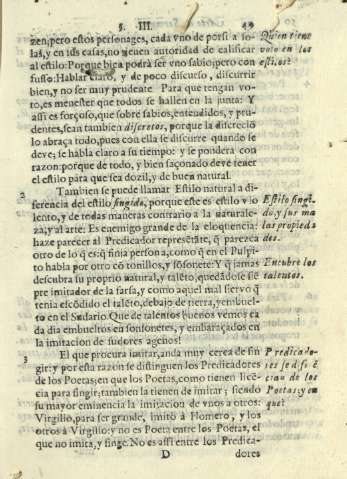 §. III. 49
zen; pero estos personages, cada vno de porsi a so-
las, y en sus casas, no tienen autoridad de calificar
al estilo: Porque bien podrà ser vno sabio; pero con-
fusso: Hablar claro, y de poco discurso, discurrir
bien, y no ser muy prudente Para que tengan vo-
to, es menester que todos se hallen en la junta: Y
assi es forçoso, que sobre sabios, entendidos, y pru-
dentes, sean tambien discretos, porque la discreciõ
lo abraça todo, pues con ella se discurre quando se
deve; se habla claro a su tiempo: y se pondera con
razon: porque de todo, y bien façonado deve tener
el estilo para que sea dozil, y de buen natural.
Quien tiene
voto en los
estilos?
2 Tambien se puede llamar Estilo natural a di-
ferencia del estilo fingido, porque este es estilo vio
lento, y de todas maneras contrario a la naturale-
za, y al arte: Es enemigo grande de la eloquencia:
haze parecer al Predicador representẽ, q̃ parezca
otro de lo q̃ es: q̃ finja persona, como q̃ en el Pulpi-
to habla por otro cõ tonillos, y sonsone: Y q̃ jamas
descubra su proprio natural, y talẽto, quedãdose siẽ
pre imitador de la farsa, y como aquel mal siervo q̃
tenia escõdido el talẽto, debajo de tierra, y embuel-
to en el Sudario. Que de talentos buenos vemos ca
da dia embueltos en sonsonetes, y embaraçados en
la imitacion de sudores agenos!
Estilo fingi-
do, y sus ma
las propieda
des.
Encubre los
talentos.
3 El que procura imitar, anda muy cerca de fin
gir: y por esta razon se distinguen los Predicadores
de los Poetas; en que los Poetas, como tienen licẽ
cia para fingir; tambien la tienen de imitar; siendo
su mayor eminencia la imitacion de vnos a otros:
Virgilio, para ser grande, imitò a Homero, y los
otros à Virgilio: y no es Poeta entre los Poetas, el
que no imita, y finge. No es assi entre los Predica-
Predicado-
res se difẽrẽ
cian de los
Poetas: y en
què?
D dores